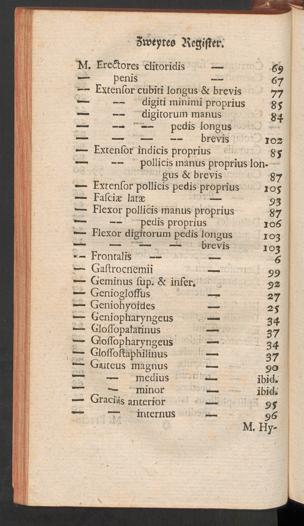 Zweytes Register.
M. Erectores clitoridis — 69
— penis — 67
— Extensor cubiti longus & brevis 77
— — digiti minimi proprius 85
— — digitorum manus 84
— — — pedis longus
— — — — brevis 102
— Extensor indicis proprius 85
— — pollicis manus proprius lon-
gus & brevis 87
— Extensor pollicis pedis proprius 105
— Fasciæ latæ — 93
— Flexor pollicis manus proprius 87
— — pedis proprius 106
— Flexor digitorum pedis longus 103
— — — — brevis 103
— Frontalis — — 6
— Gastrocnemii — 99
— Geminus sup. & infer. 92
— Genioglossus — 27
— Geniohyoides — 25
— Geniopharyngeus — 34
— Glossopalatinus — 37
— Glossopharyngeus — 34
— Glossostaphilinus — 37
— Gluteus magnus — 90
— — medius — ibid.
— — minor — ibid.
— Gracilis anterior — 95
— — internus — 96
M. Hy-